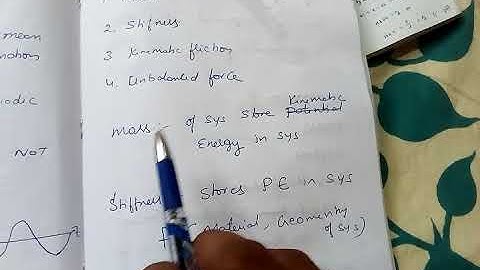 mean
NOT
2. Stiffness
3 Kinematic friction
4. Unbalanced force
Mass :- of sys store Kinematic Potential
Energy in sys
Stiffness Stores PE in sys
f (Material, Geomenty
of sys)